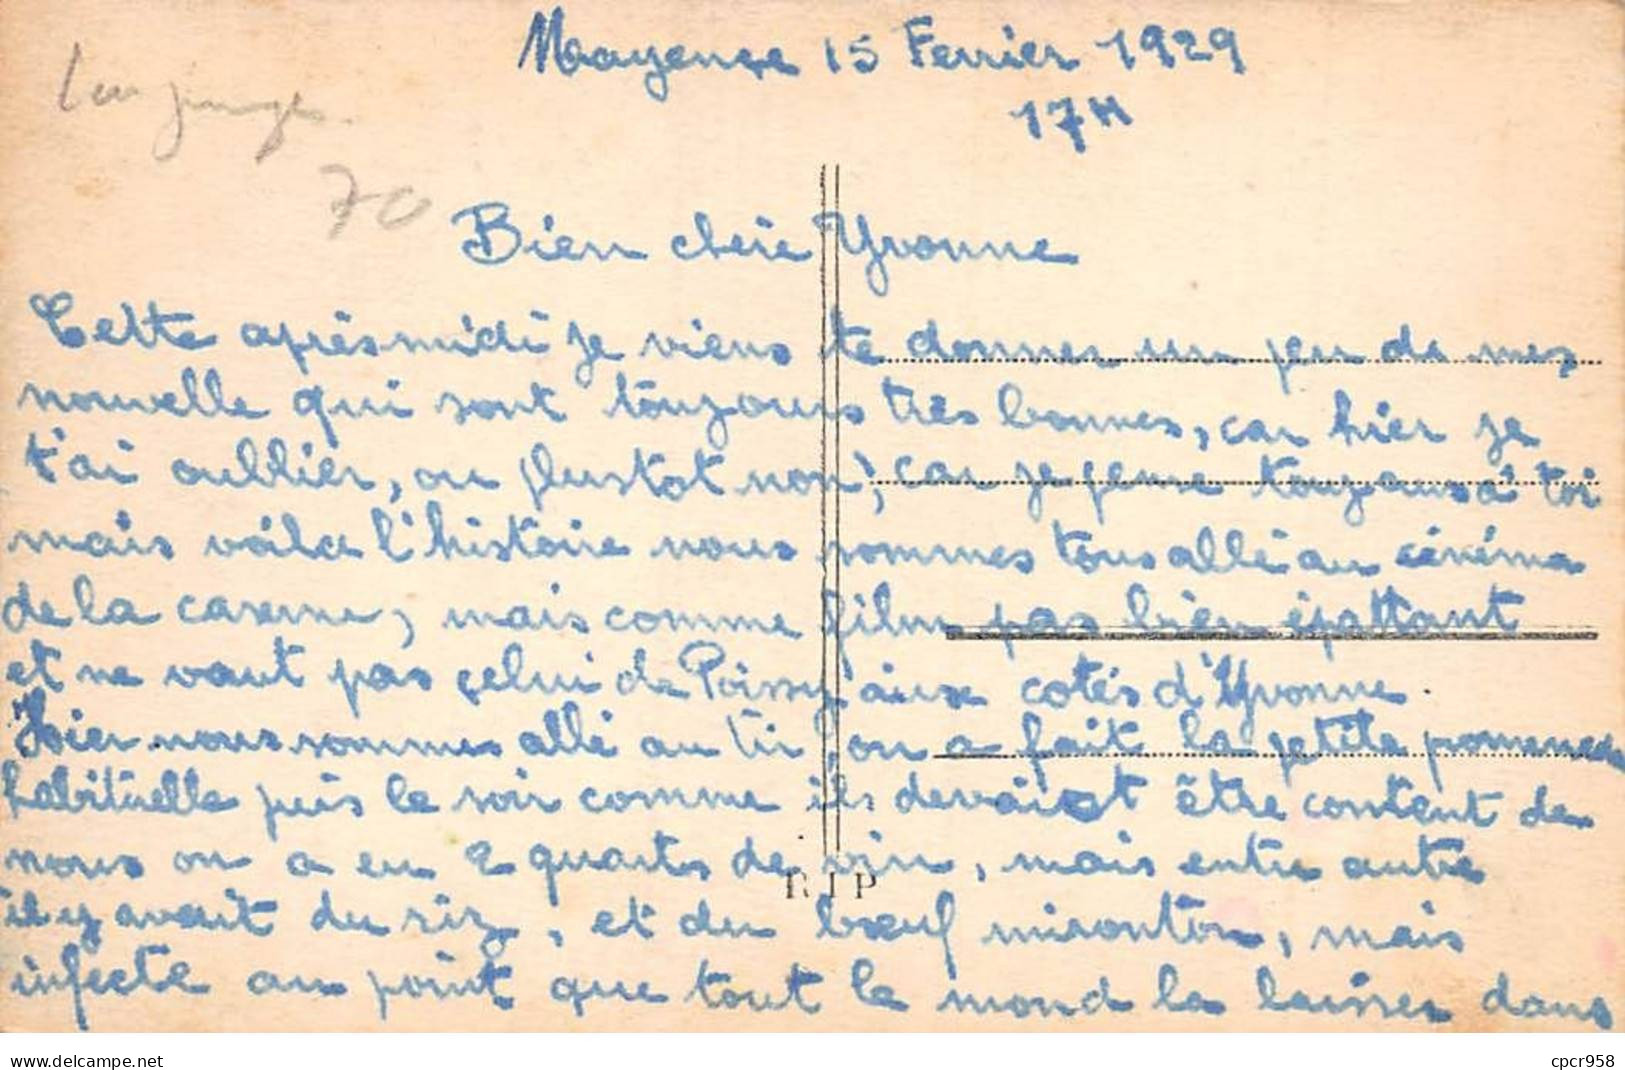 Mayence 15 Ferrier 1929
17H
70
Bien chère Yvonne
Cette après midi je viens te donner un peu de mes
nouvelle qui sont toujours très bonnes, car hier je
t'ai oublier, ou plustot non, car je pense toujours à toi
mais voila l'histoire nous sommes tous allé au cinéma
de la caserne, mais comme film pas bien épattant
et ne vaut pas celui de Poissy aux cotés d'Yvonne.
Hier nous sommes allé au tir, on a fait la petite promenade
habituelle puis le soir comme ils devaiest être content de
nous on a eu 2 quarts de vin, mais entre autre
il y avait du riz, et du bœuf mironton, mais
infecte au point que tout le mond la laisser dans
RIP
cpcr958